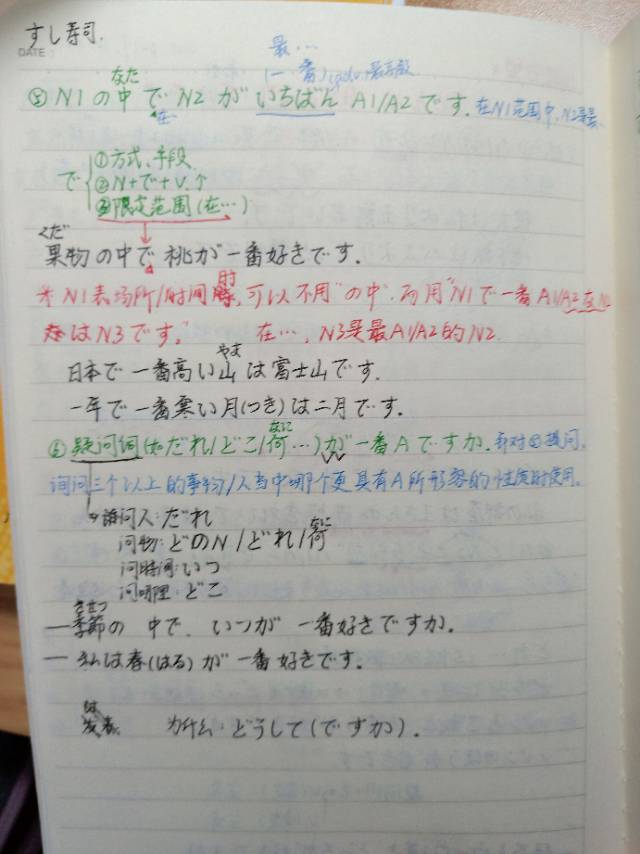 すし寿司.
DATE
最…
(一番)
なた
⑤ N1 の中で N2 が いちばん A1/A2 です. 在N1范围中, N2是最
在
①方式、手段
で ②N+で+V.↑
③限定范围(在…)
くだ
果物の中で 桃が 一番好きです.
* N1表场所/时间时, 可以不用"の中", 而用"N1で一番 A1/A2 N2
はN3です." 在…, N3是最A1/A2的N2
やま
日本で 一番高い山は富士山です.
一年で 一番寒い月(つき)は二月です.
なに
⑥ 疑问词(如だれ/どこ/何…)が 一番Aですか. 针对⑤提问.
询问三个以上的事物/人当中哪个更具有A所形容的性质时使用.
→询问人:だれ
なに
问物: どのN/どれ/何
问时间:いつ
问哪里: どこ
きせつ
—季節の 中で、いつが 一番好きですか.
— 私は春(はる)が 一番 好きです.
为什么. どうして(ですか).